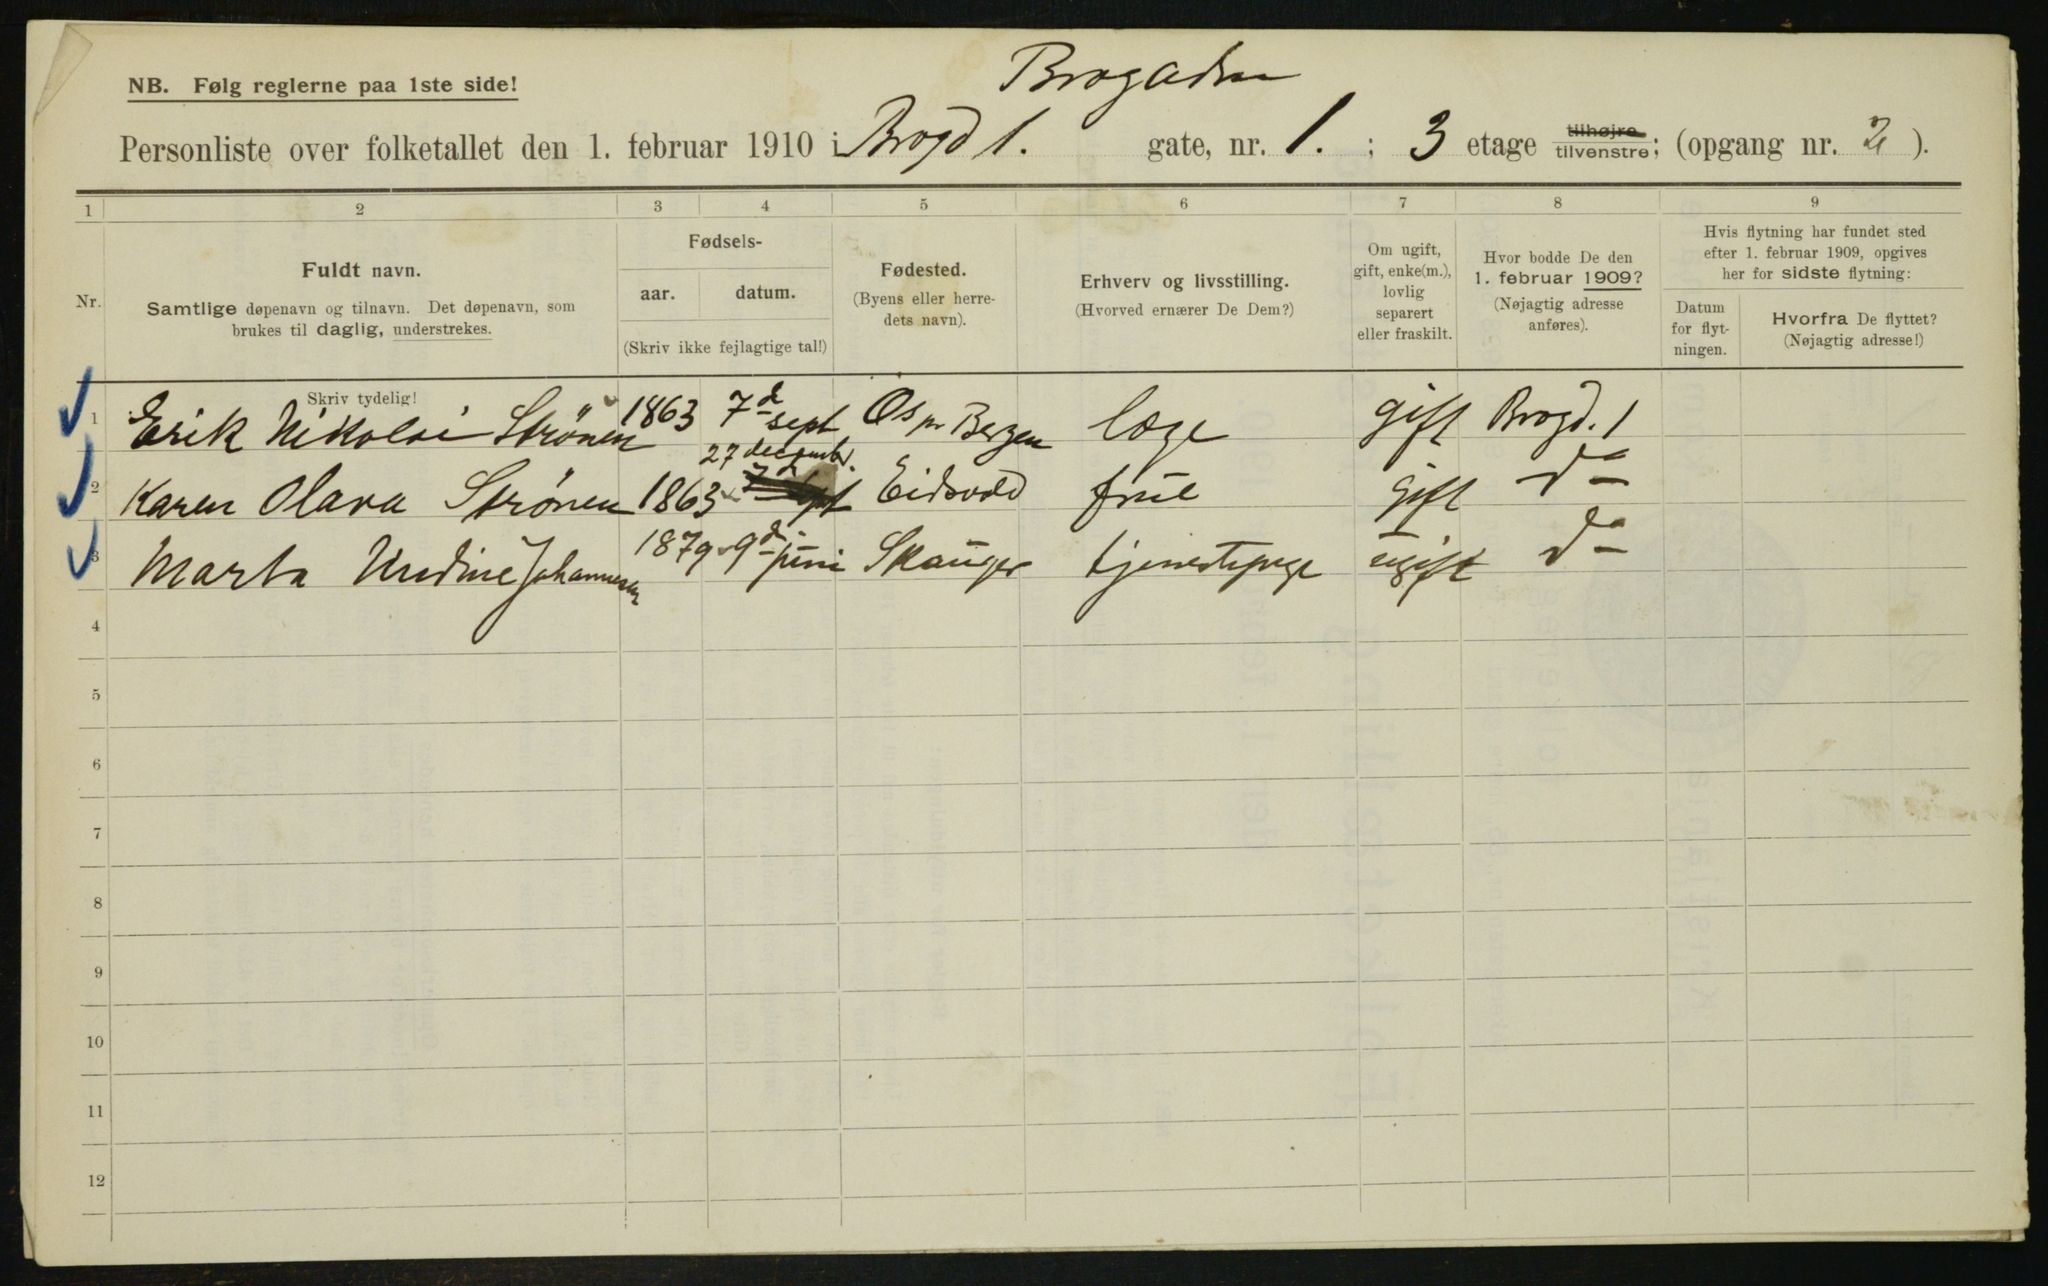 NB. Følg reglerne paa 1ste side!
Brogaden
Personliste over folketallet den 1. februar 1910 i Brogd 1. gate, nr. 1. ; 3 etage tilhøjre tilvenstre; (opgang nr. 2 ).
1 2 3 4 5 6 7 8 9
Nr.
Fuldt navn.
Samtlige døpenavn og tilnavn. Det døpenavn, som
brukes til daglig, understrekes.
Fødsels-
aar. datum.
(Skriv ikke fejlagtige tal!)
Fødested.
(Byens eller herre-
dets navn).
Erhverv og livsstilling.
(Hvorved ernærer De Dem?)
Om ugift,
gift, enke(m.),
lovlig
separert
eller fraskilt.
Hvor bodde De den
1. februar 1909?
(Nøjagtig adresse
anføres).
Hvis flytning har fundet sted
efter 1. februar 1909, opgives
her for sidste flytning:
Datum
for flyt-
ningen.
Hvorfra De flyttet?
(Nøjagtig adresse!)
Skriv tydelig!
1 Erik Nikolai Strönen 1863 7d sept Os pr Bergen læge gift Brogd. 1
27 december.
2 Karen Olava Strönen 1863 7d sept Eidsvold frue gift do
3 Marta Undine Johannesen 1879 9d juni Skauger tjenestepige ugift do
4
5
6
7
8
9
10
11
12